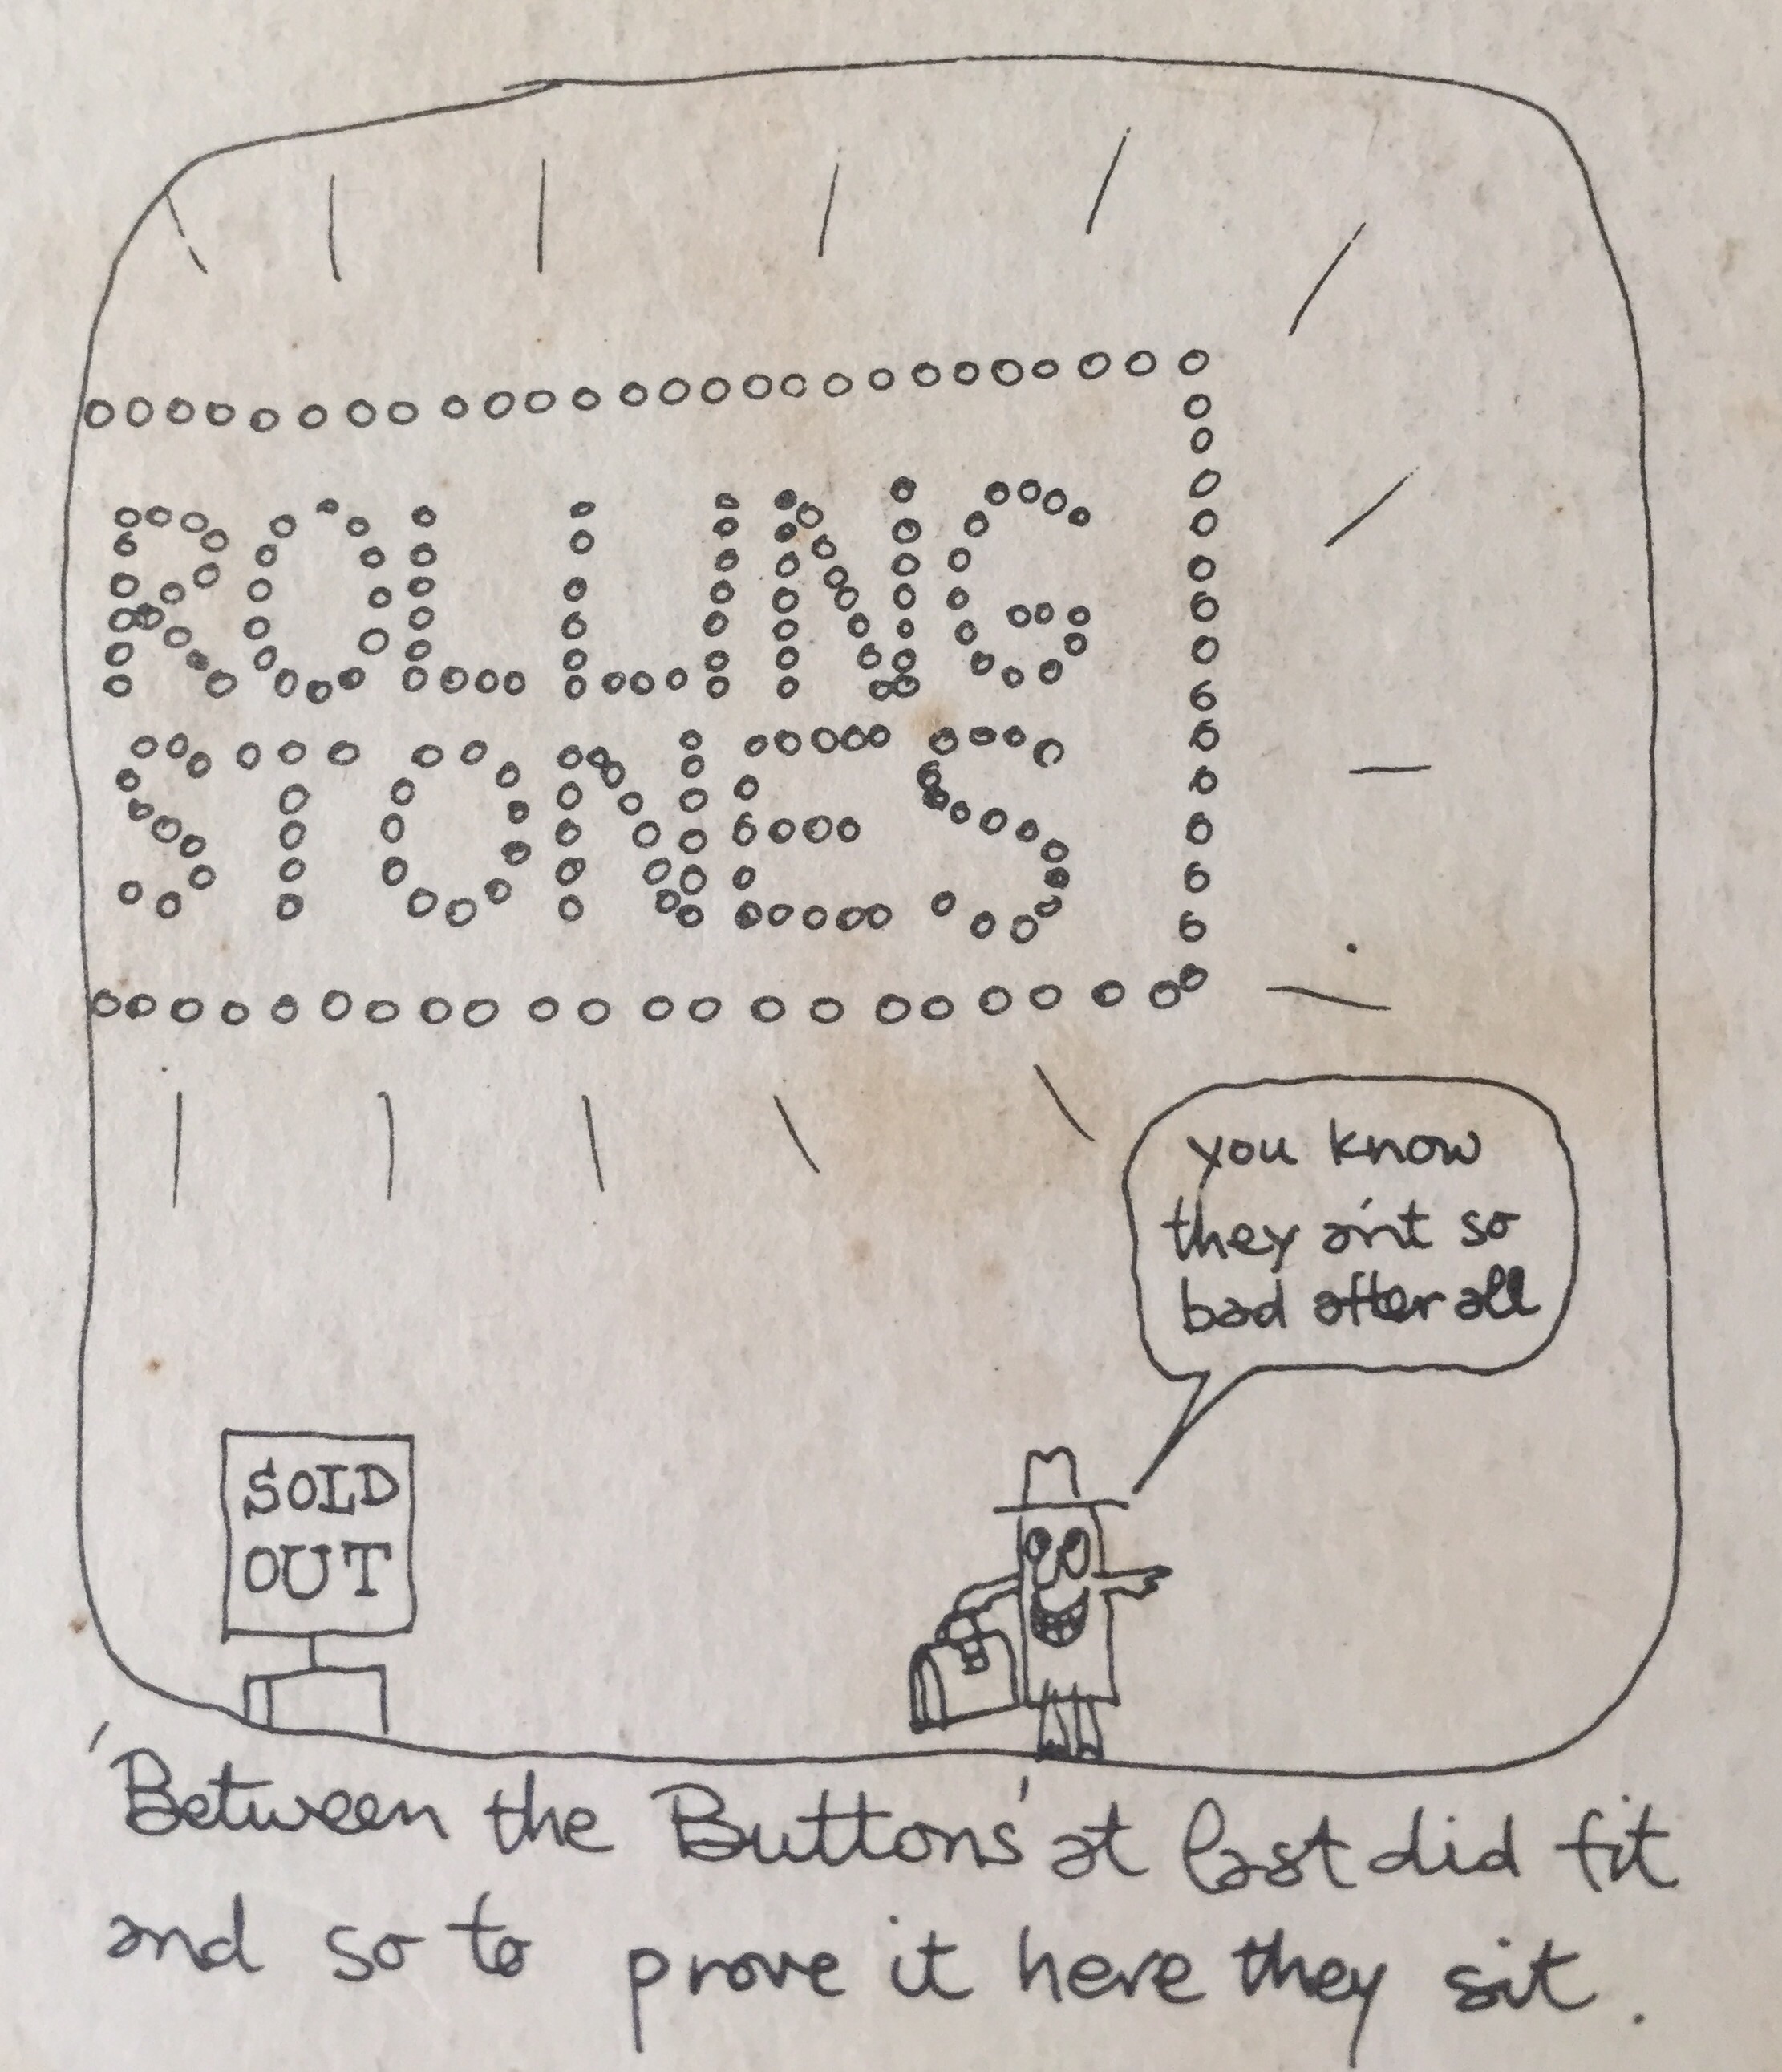 ROLLING
STONES
you know
they ain't so
bad after all
SOLD
OUT
'Between the Buttons' at last did fit
and so to prove it here they sit.